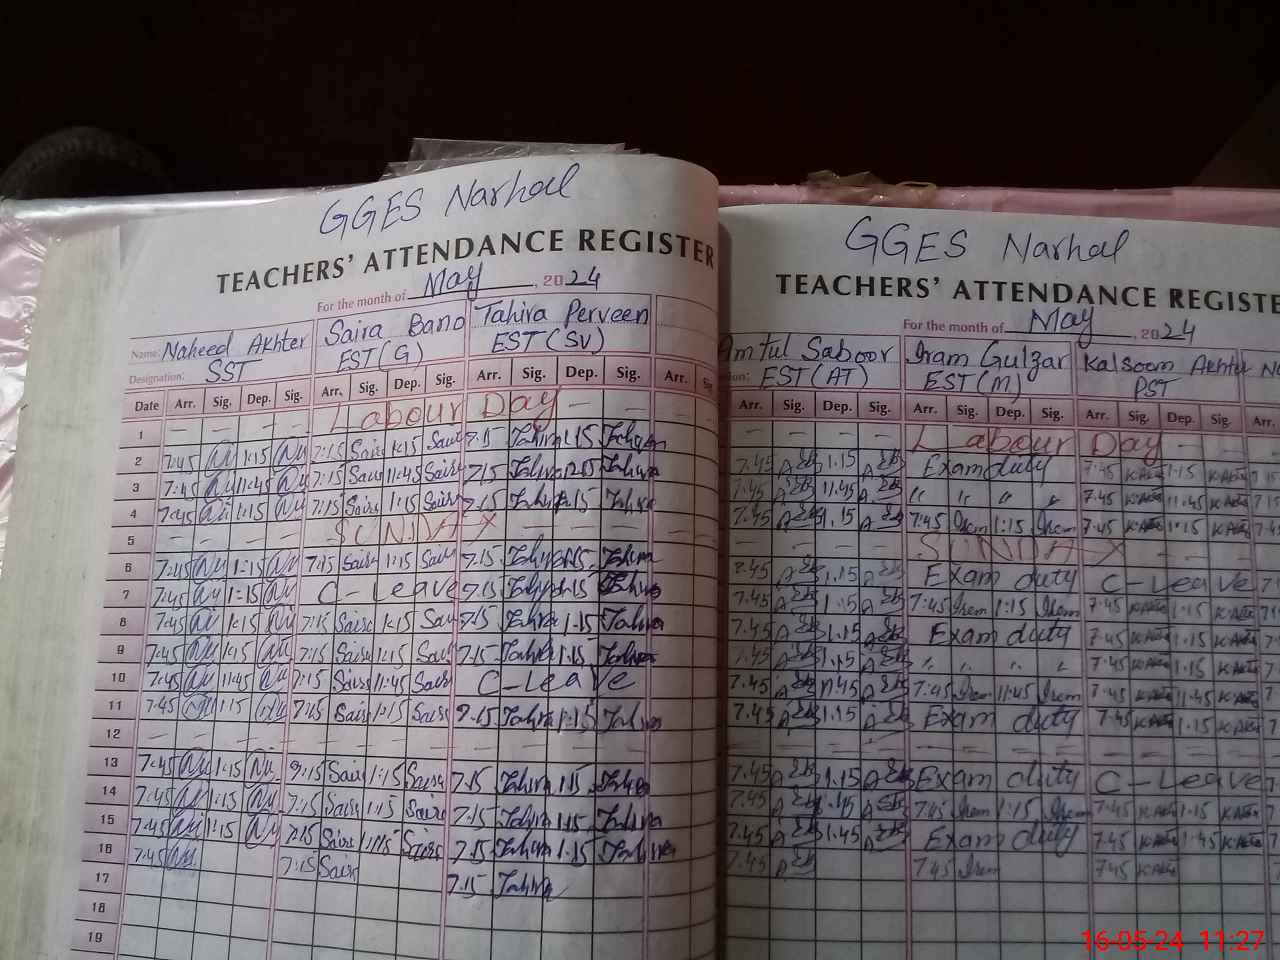 GGES Narhol
TEACHERS' ATTENDANCE REGISTER
For the month of May, 2024
Name: Naheed Akhter Saira Bano Tahira Perveen
Designation: SST EST (G) EST (SV)
Date Arr. Sig. Dep. Sig. Arr. Sig. Dep. Sig. Arr. Sig. Dep. Sig. Arr.
1 — — — — Labour Day — —
2 7:45 1:15 7:15 Saira 1:15 Saira 7.15 Tahira 1.15 Tahira
3 7:45 11:45 7:15 Saira 11:45 Saira 7.15 Tahira Tahira
4 7:45 1:15 7:15 Saira 1:15 Saira 7.15 Tahira 1.15 Tahira
5 — — — — SUNDAY — — —
6 7:45 1:15 7:15 Saira 1:15 Saira 7.15 Tahira 1.15 Tahira
7 7:45 1:15 C-Leave 7.15 Tahira 1.15 Tahira
8 7:45 1:15 7:15 Saira 1:15 Saira 7.15 Tahira 1.15 Tahira
9 7:45 1:15 7:15 Saira 1:15 Saira 7.15 Tahira 1.15 Tahira
10 7:45 11:45 7:15 Saira 11:45 Saira C-Leave
11 7:45 1:15 7:15 Saira 1:15 Saira 7.15 Tahira 1:15 Tahira
12 — — — — — — — — — — — —
13 7:45 1:15 Saira 1:15 Saira 7.15 Tahira 1.15 Tahira
14 7:45 1:15 7:15 Saira 1:15 Saira 7.15 Tahira 1.15 Tahira
15 7:45 1:15 7:15 Saira Saira 7.15 Tahira 1.15 Tahira
16 7:45 7:15 Saira 7.15 Tahira
17
18
19
GGES Narhol
TEACHERS' ATTENDANCE REGISTE
For the month of May, 2024
Amtul Saboor Iram Gulzar Kalsoom Akhter
EST (AT) EST (M) PST
Arr. Sig. Dep. Sig. Arr. Sig. Dep. Sig. Arr. Sig. Dep. Sig. Arr.
— — — — Labour Day — —
7.45 1.15 Exam duty 7:45 1:15
7.45 11.45 " " " " 7.45 11.45
7.45 1.15 7:45 Irem 1:15 Irem 7.45 1.15
— — — — SUNDAY — —
7.45 1.15 Exam duty C-Leave
7.45 1.15 7:45 Irem 1:15 Irem 7.45 1.15
7.45 1.15 Exam duty 7.45 1.15
7.45 1.15 " " " " 7.45 1.15
7.45 11.45 7:45 Irem 11:45 Irem 7.45 11.45
7.45 1.15 Exam duty 7.45 1.15
— — — — — — — — — — — —
7.45 1.15 Exam duty C-Leave
7.45 7:45 Irem 1:15 Irem 7.45 1.15
7.45 1.45 Exam duty 7.45 1.45
7.45 7:45 Irem 7.45
16-05-24 11:27